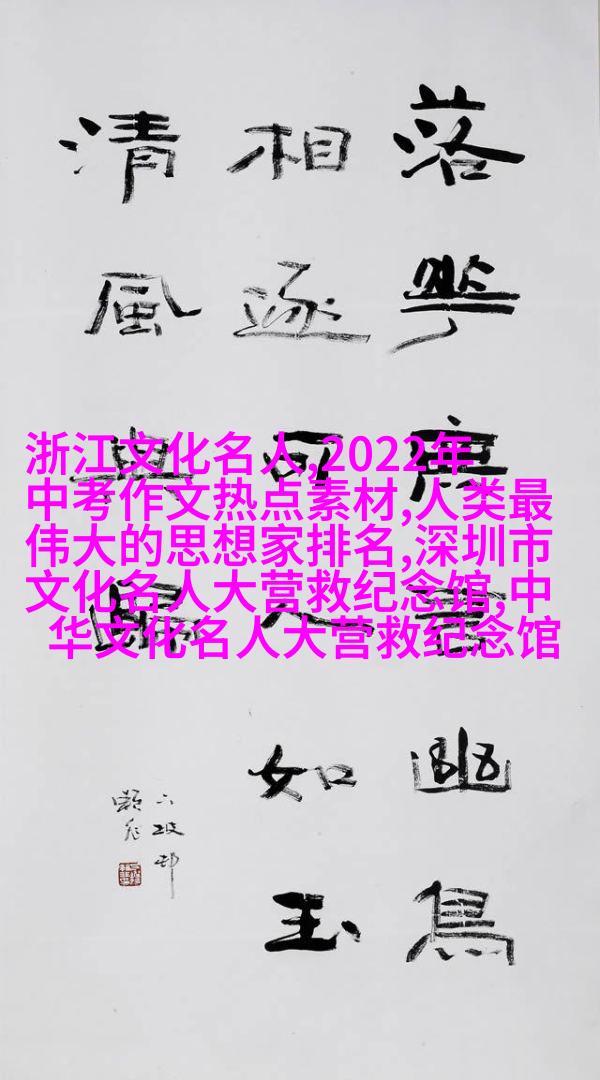 浙江文化名人,2022年
中考作文热点素材,人类最
伟大的思想家排名,深圳市
文化名人大营救纪念馆,中
华文化名人大营救纪念馆
落 幽鳥
相逐可人如玉
清風與歸